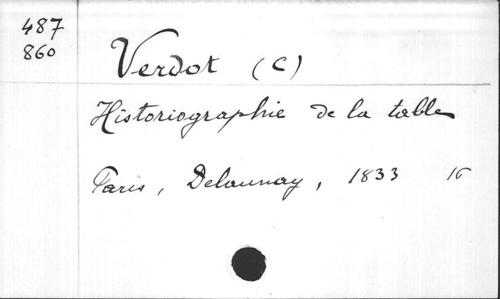 487
860
Verdot (C)
Historiographie de la table
Paris, Delaunay, 1833 16